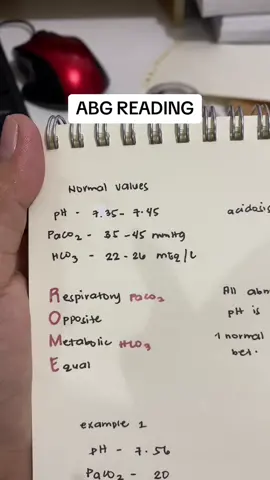 ABG READING
Normal values
pH - 7.35 - 7.45
PaCO2 - 35 - 45 mmHg
HCO3 - 22 - 26 mEq/L
acidosis
Respiratory PaCO2
Opposite
Metabolic HCO3
Equal
All abn
pH is
1 normal
bet.
example 1
pH - 7.56
PaCO2 - 20